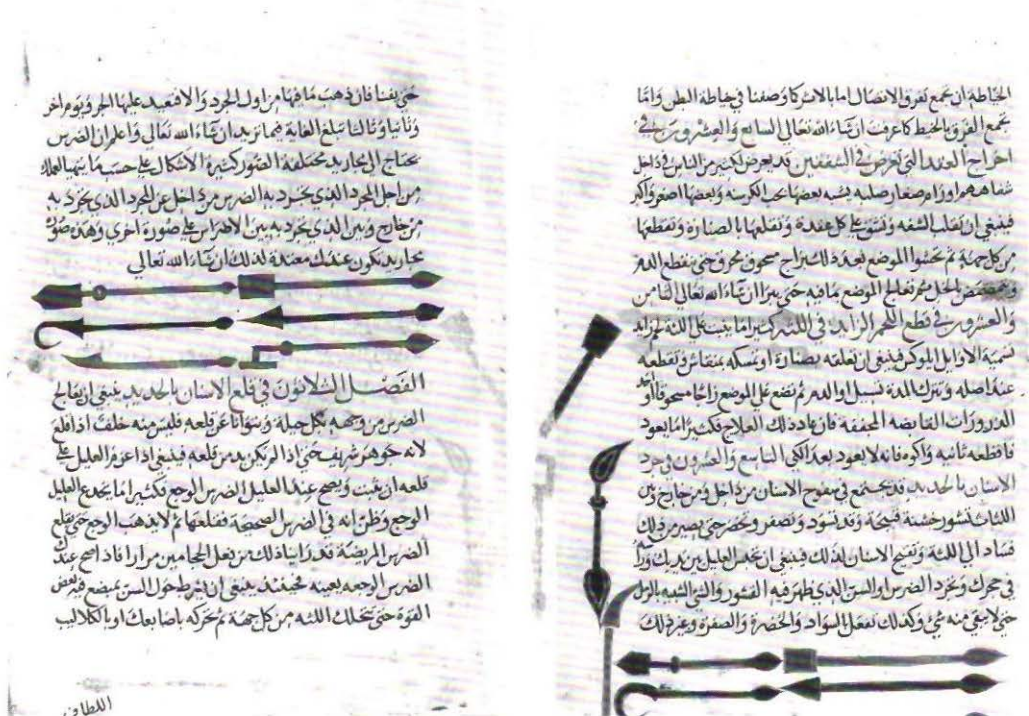 الخياطة ان تجمع تفرق الاتصال اما بالابر كما وصفنا في خياطة البطن واما
تجمع الفرق بالخيط كما عرفت ان شاء الله تعالى السابع والعشرون في
اخراج العقد التي تعرض في الشفتين قد يعرض لكثير من الناس في داخل
شفاههم اورام صغار صلبه يشبه بعضها حب الكرسنه وبعضها اصغر واكبر
فينبغي ان تقلب الشفه وتشق على كل عقدة وتعلقها بالصنارة وتقطعها
من كل جهة ثم تحشوا الموضع بعد ذلك بزاج مسحوق محرق حتى ينقطع الدم
ثم يتمضمض بالخل ثم تعالج الموضع بما فيه حتى يبرا ان شاء الله تعالى الثامن
والعشرون في قطع اللحم الزايد في اللثه كثيرا ما ينبت على اللثة لحم زايد
تسميه الاوايل ابلوكس فينبغي ان تعلقه بصنارة او تمسكه بمنقاش وتقطعه
عند اصله وتترك المدة تسيل او الدم ثم تضع على الموضع زاجا مسحوقا او احد
الذرورات القابضه المجففه فان عاد ذلك بعد العلاج فكثيرا ما يعود
فاقطعه ثانيه واكوه فانه لا يعود بعد الكي التاسع والعشرون في جرد
الاسنان بالحديد قد يجتمع في سطوح الاسنان من داخل ومن خارج وبين
اللثات قشور خشنة قبيحة وقد تسود وتصفر وتخضر حتى يصير من ذلك
فساد الى اللثة وتقبح الاسنان لذلك فينبغي ان تجلس العليل بين يديك وراسه
في حجرك وتجرد الضرس او السن الذي ظهر فيه القشور والشي الشبيه بالرمل
حتى لا يبقى منه شي وكذلك تفعل بالسواد والخضرة والصفرة وغير ذلك
حتى ينقا فان ذهب ما فيها من اول الجرد والا فتعيد عليها الجرد يوم اخر
وثانيا وثالثا تبلغ الغاية فيما تريد ان شاء الله تعالى واعلم ان الضرس
يحتاج الى مجاريد مختلفة الصور كثيرة الاشكال على حسب ما يتهيا لعملك
من اجل المجرد الذي يجرد به الضرس من داخل غير المجرد الذي يجرد به
من خارج وبين الذي يجرد به بين الاضراس على صورة اخرى وهذه صور
مجاريد تكون عندك معدة لذلك ان شاء الله تعالى
الفصل الثلاثون في قلع الاسنان بالحديد ينبغي ان يعالج
الضرس من وجعه بكل حيلة ويتوانا عن قلعه فليس منه خلف اذا قلع
لانه جوهر شريف حتى اذا لم يكن بد من قلعه فينبغي اذا عزم العليل على
قلعه ان يثبت ويصح عند العليل الضرس الوجع فكثيرا ما يخدع العليل
الوجع وظن انه في الضرس الصحيحة فقلعها ثم لا يذهب الوجع حتى يقلع
الضرس المريضة قد راينا ذلك من فعل الحجامين مرارا فاذا صح عندك
الضرس الوجعه بعينه فحينئذ ينبغي ان يشرط حول السن بمبضع فيه بعض
القوة حتى تتحلل اللثه من كل جهة ثم تحركه باصابعك او بالكلاليب
اللطاف